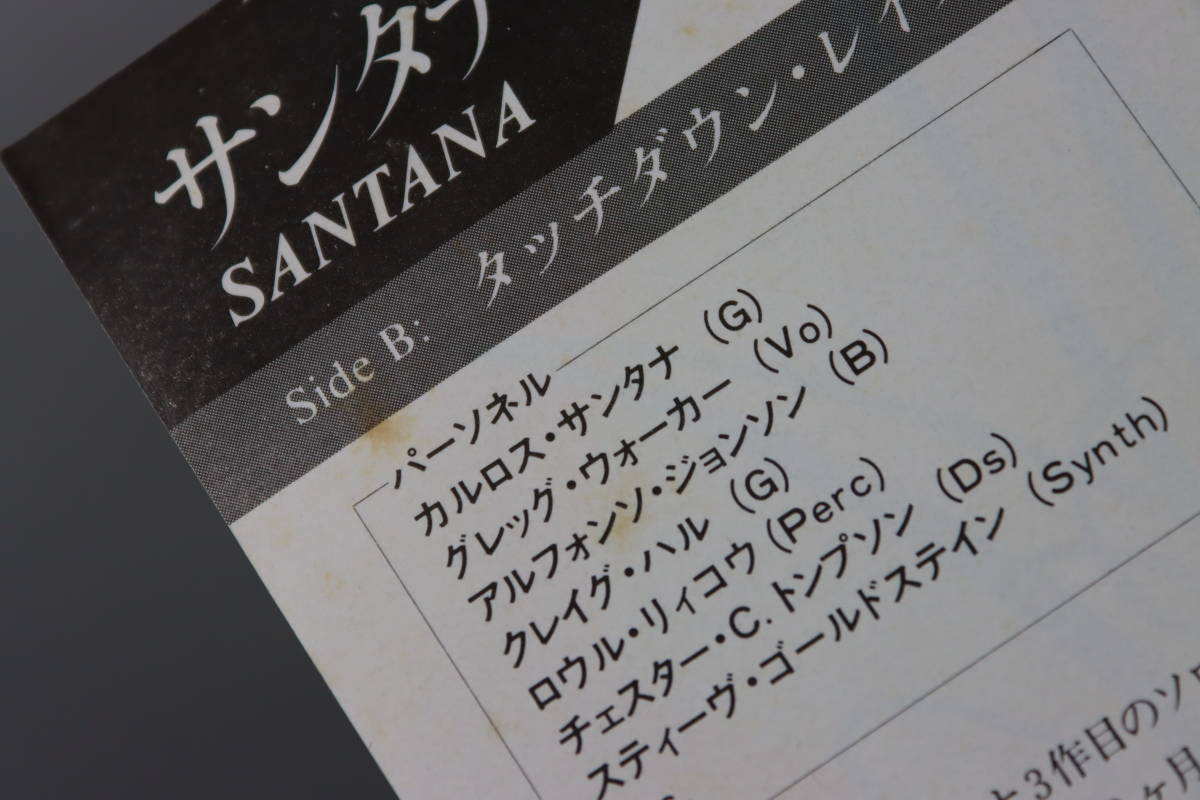 サンタナ
SANTANA
Side B: タッチダウン・レイ
パーソネル
カルロス・サンタナ (G)
グレッグ・ウォーカー (Vo)
アルフォンソ・ジョンソン (B)
クレイグ・ハル (G)
ロウル・リィコウ (Perc)
チェスター・C. トンプソン (Ds)
スティーヴ・ゴールドステイン (Synth)
3作目のソロ
ヶ月